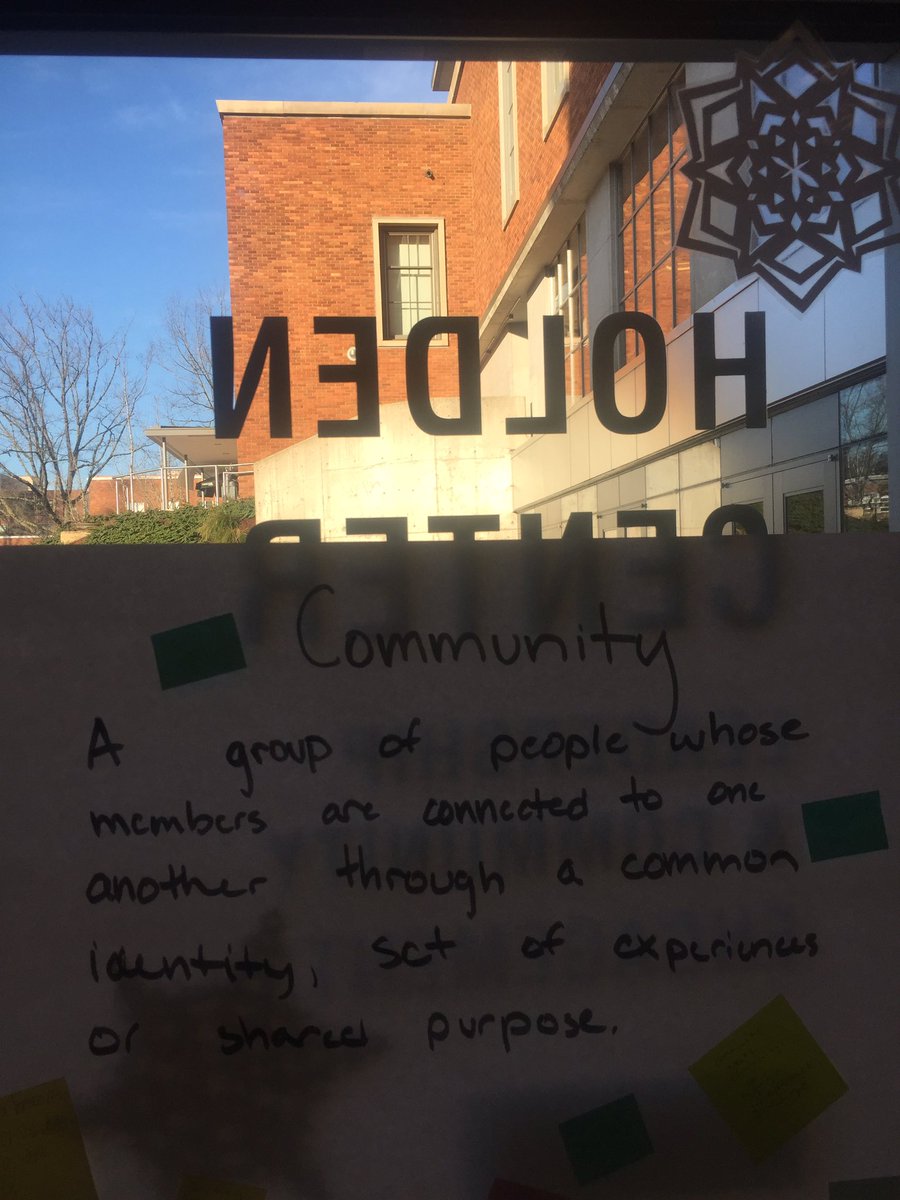 HOLDEN
CENTER
Community
A group of people whose
members are connected to one
another through a common
identity, set of experiences
or shared purpose.